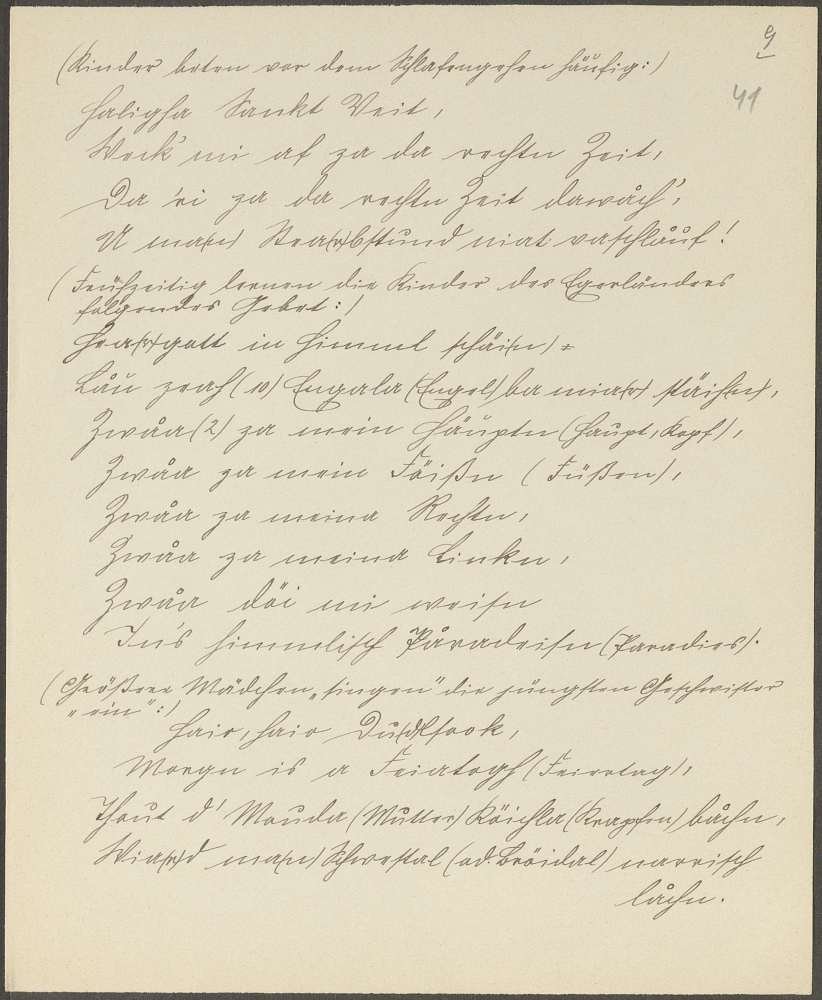 9
41
(Kinder beten vor dem Schlafengehen häufig:)
Haligha Sankt Veit,
Weck' mi af za da rechtn Zeit,
Da 'ri za da rechtn Zeit dawåch',
U ma(n) Stea(r)bstund niat vaschlåuf!
(Frühzeitig lernen die Kinder des Egerlandes
folgendes Gebet:)
Hea(r)gott in Himml schäi(n) =
Låu zeah (10) Engala (Engel) ba mia(r) stäih(n),
Zwåa (2) za mein Häuptn (Haupt, Kopf),
Zwåa za mein Föißn (Füßen),
Zwåa za meina Rechtn,
Zwåa za meina Linkn,
Zwåa döi mi weisn
In's himmlisch Påradeisn (Paradies).
(Größere Mädchen „singen" die jüngsten Geschwister
„ein":)
Haio, haio Du(d)lsook,
Morgn is a Feiatogh (Feiertag),
Thout d' Mouda (Mutter) Köichla (Krapfen) båchn,
Wia(r)d ma(n) Schwestal (od. Bröidal) narrisch
låchn.